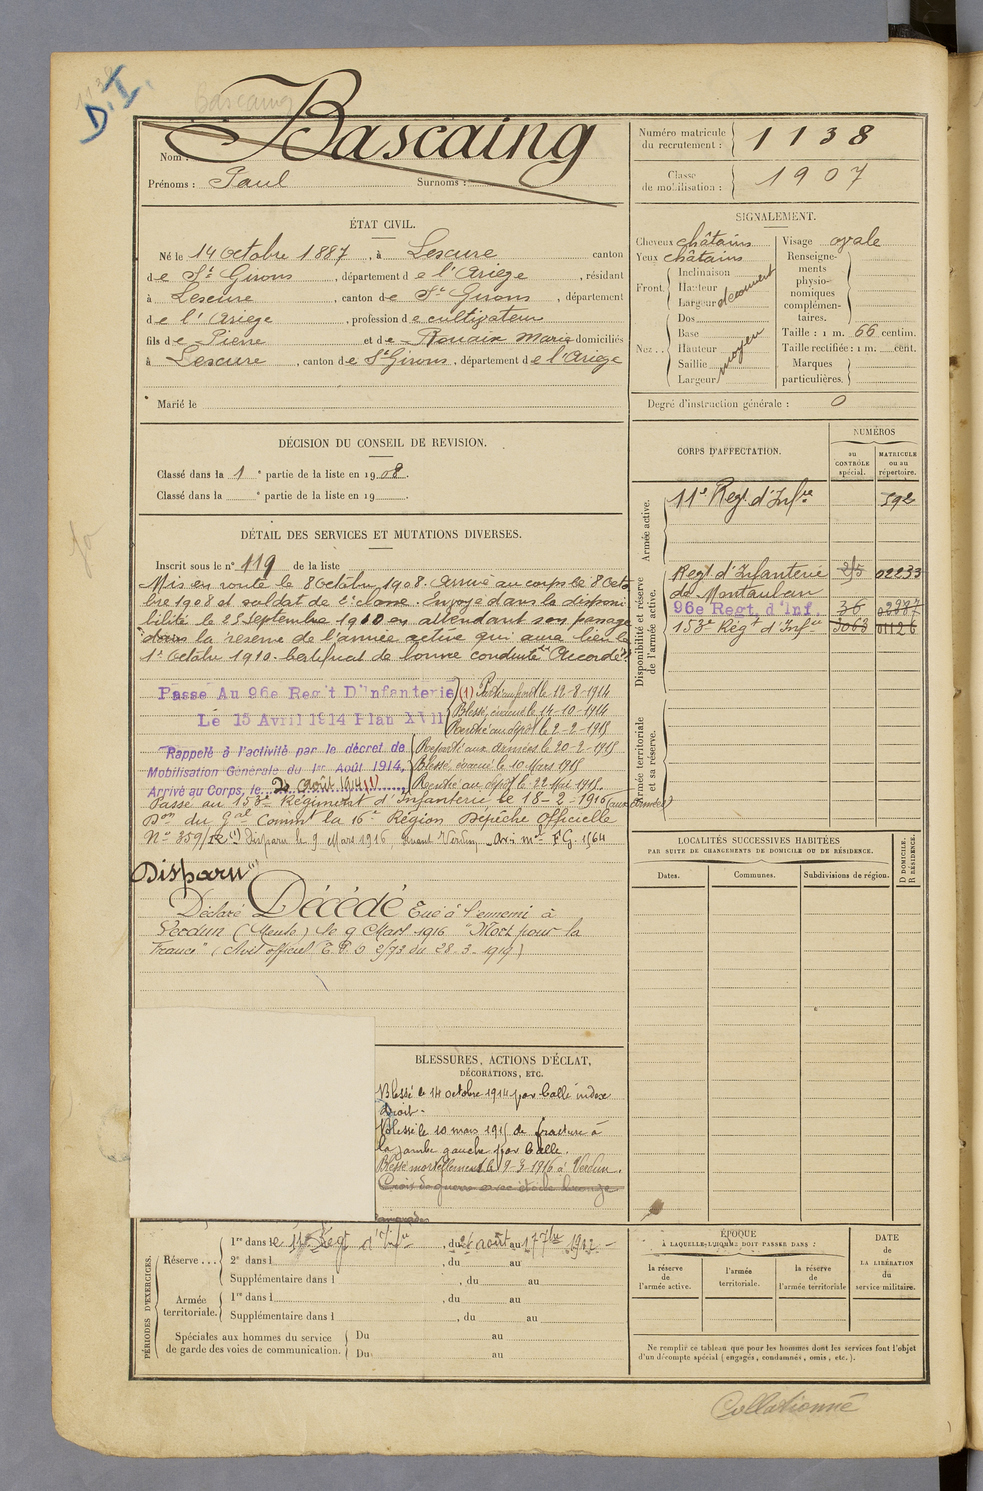 1138
D.I.
Bascaing
Nom : Bascaing
Prénoms : Paul Surnoms :
ÉTAT CIVIL.
Né le 14 Octobre 1887, à Lescure canton
de St Girons, département de l'Ariège, résidant
à Lescure, canton de St Girons, département
de l'Ariège, profession de cultivateur
fils de Pierre et de Rouaix Marie domiciliés
à Lescure, canton de St Girons, département de l'Ariège
Marié le
DÉCISION DU CONSEIL DE REVISION.
Classé dans la 1e partie de la liste en 1908.
Classé dans la e partie de la liste en 19 .
DÉTAIL DES SERVICES ET MUTATIONS DIVERSES.
Inscrit sous le n° 119 de la liste
Mis en route le 8 Octobre 1908. Arrivé au corps le 8 Octo
bre 1908 et soldat de 2e classe. Envoyé dans la disponi
bilité le 25 Septembre 1910 en attendant son passage
dans la réserve de l'armée active qui aura lieu le
1er Octobre 1910. Certificat de bonne conduite Accordé
Passé Au 96e Reg't D'Infanterie
Le 15 Avril 1914 Plan XVII
(1) Parti au front le 12-8-1914
Blessé, évacué le 14-10-1914
Rentré au dépôt le 2-2-1915
Rappelé à l'activité par le décret de
Mobilisation Générale du 1er Août 1914,
Arrivé au Corps, le 2 Août 1914 (1)
Reparti aux armées le 20-2-1915
Blessé, évacué le 10 Mars 1915
Rentré au dépôt le 22 Mai 1915
Passé au 153e Régiment d'Infanterie le 18-2-1916 (aux armées)
Don du Gal Commt la 16e Région Dépêche Officielle
N° 359/ Disparu le 9 Mars 1916 devant Verdun Avis mel FG. 1564
Disparu
Déclaré Décédé Tué à l'ennemi à
Verdun (Meuse) le 9 Mars 1916 "Mort pour la
France" (Avis officiel 2/73 du 28-3-1919)
BLESSURES, ACTIONS D'ÉCLAT,
DÉCORATIONS, ETC.
Blessé le 14 octobre 1914 par balle index
droit.
Blessé le 10 mars 1915 de fracture à
la jambe gauche par balle.
Blessé mortellement le 9-3-1916 à Verdun.
Croix de guerre avec étoile bronze
PÉRIODES D'EXERCICES.
Réserve...
1re dans le 11e Régt d'Infie, du 26 août au 17 7bre 1912
2e dans l , du au
Supplémentaire dans l , du au
Armée territoriale.
1re dans l , du au
Supplémentaire dans l , du au
Spéciales aux hommes du service
de garde des voies de communication.
Du au
Du au
Numéro matricule
du recrutement : 1138
Classe
de mobilisation : 1907
SIGNALEMENT.
Cheveux châtains
Yeux châtains
Front. Inclinaison
Hauteur
Largeur découvert
Nez.. Dos
Base
Hauteur moyen
Saillie
Largeur
Visage ovale
Renseigne-
ments
physio-
nomiques
complémen-
taires.
Taille : 1 m. 66 centim.
Taille rectifiée : 1 m. cent.
Marques
particulières.
Degré d'instruction générale : 0
CORPS D'AFFECTATION.
NUMÉROS
au
CONTRÔLE
spécial.
MATRICULE
ou au
répertoire.
Armée active.
11e Régt d'Infie 592
Disponibilité et réserve
de l'armée active.
Régt d'Infanterie 02233
de Montauban
96e Regt. d'Inf. 36 02987
153e Régt d'Infie 3063 01126
Armée territoriale
et sa réserve.
LOCALITÉS SUCCESSIVES HABITÉES
PAR SUITE DE CHANGEMENTS DE DOMICILE OU DE RÉSIDENCE.
D DOMICILE.
R RÉSIDENCE.
Dates. Communes. Subdivisions de région.
ÉPOQUE
À LAQUELLE L'HOMME DOIT PASSER DANS :
la réserve
de
l'armée active.
l'armée
territoriale.
la réserve
de
l'armée territoriale
DATE
de
LA LIBÉRATION
du
service militaire.
Ne remplir ce tableau que pour les hommes dont les services font l'objet
d'un décompte spécial (engagés, condamnés, omis, etc.).
Collationné